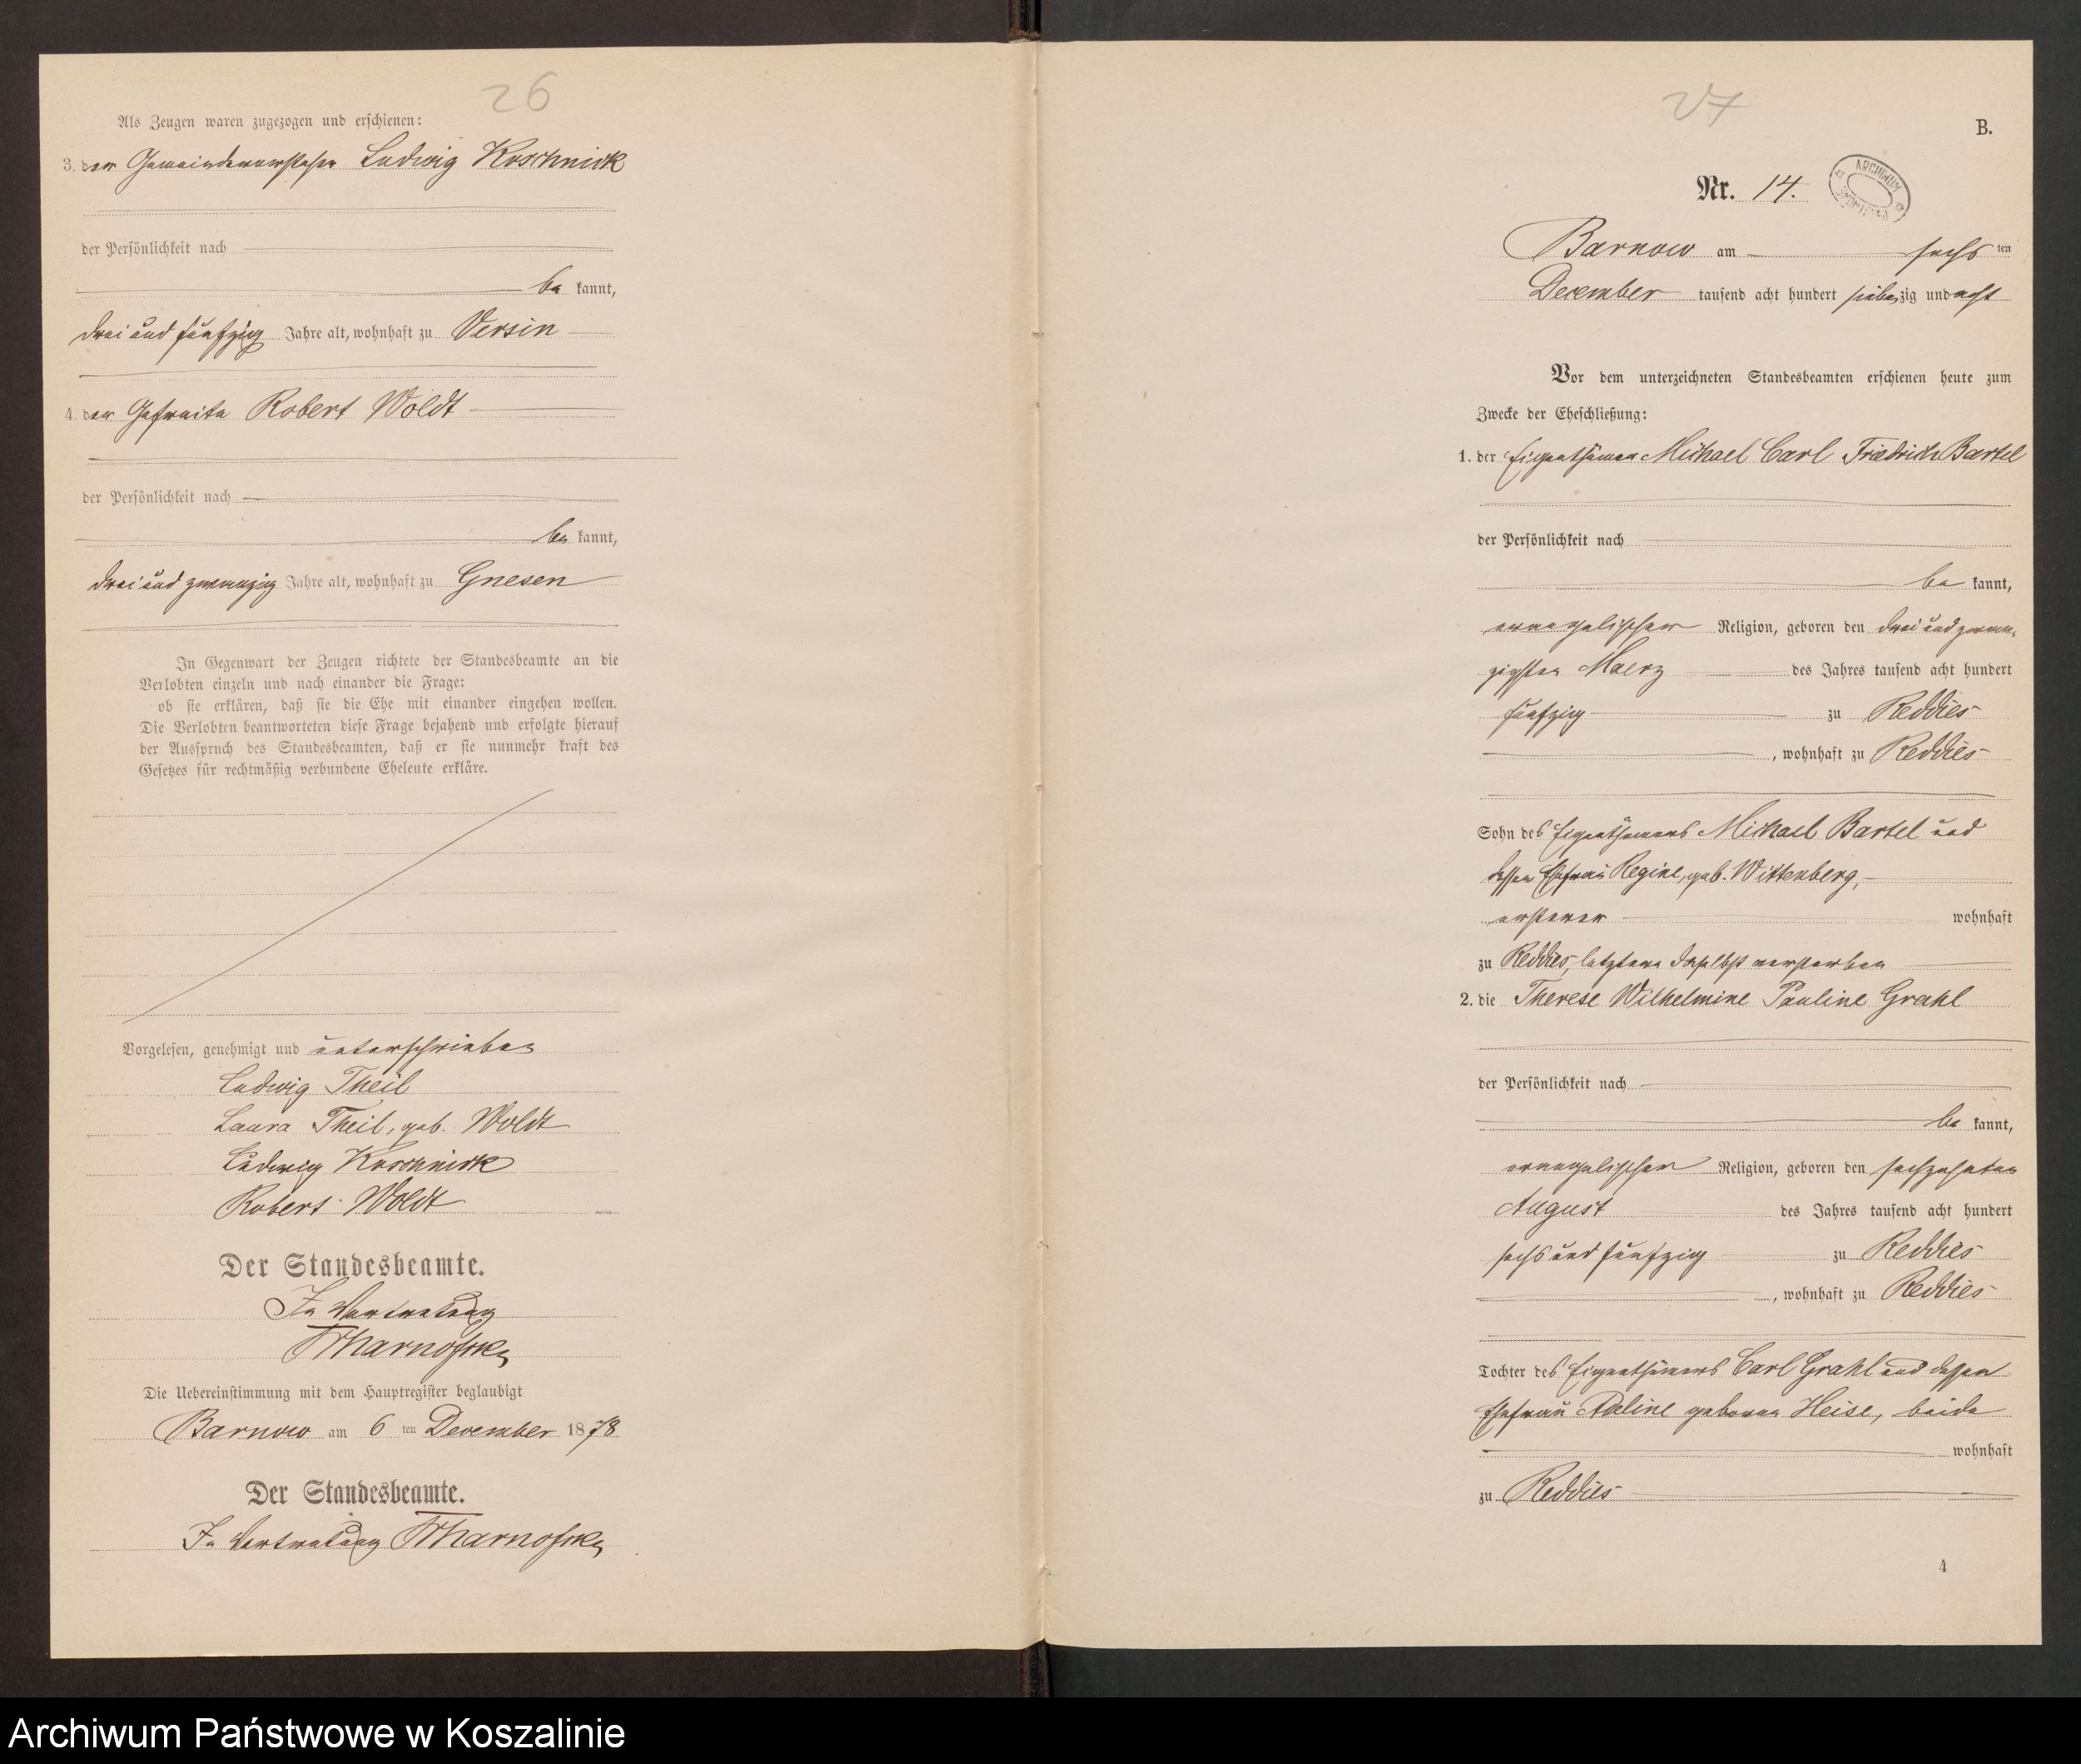 26
Als Zeugen waren zugezogen und erschienen:
3. der Gemeindevorsteher Ludwig Koschnick
der Persönlichkeit nach
be kannt,
drei und fünfzig Jahre alt, wohnhaft zu Versin
4. der Gefreite Robert Woldt
der Persönlichkeit nach
be kannt,
drei und zwanzig Jahre alt, wohnhaft zu Gnesen
In Gegenwart der Zeugen richtete der Standesbeamte an die
Verlobten einzeln und nach einander die Frage:
ob sie erklären, daß sie die Ehe mit einander eingehen wollen.
Die Verlobten beantworteten diese Frage bejahend und erfolgte hierauf
der Ausspruch des Standesbeamten, daß er sie nunmehr kraft des
Gesetzes für rechtmäßig verbundene Eheleute erkläre.
Vorgelesen, genehmigt und unterschrieben
Ludwig Theil
Laura Theil, geb. Woldt
Ludwig Koschnick
Robert Woldt
Der Standesbeamte.
In Vertretung
Die Uebereinstimmung mit dem Hauptregister beglaubigt
Barnow am 6 ten December 1878
Der Standesbeamte.
In Vertretung
27
B.
Nr. 14.
ARCHIWUM
Barnow am sechs ten
December tausend acht hundert siebenzig und acht
Vor dem unterzeichneten Standesbeamten erschienen heute zum
Zwecke der Eheschließung:
1. der Eigenthümer Michael Carl Friedrich Bartel
der Persönlichkeit nach
be kannt,
evangelischer Religion, geboren den drei und zwan-
zigsten Maerz des Jahres tausend acht hundert
fünfzig zu Reddies
, wohnhaft zu Reddies
Sohn des Eigenthümers Michael Bartel und
dessen Ehefrau Regine, geb. Wittenberg,
ersterer wohnhaft
zu Reddies, letztere daselbst verstorben
2. die Therese Wilhelmine Pauline Grahl
der Persönlichkeit nach
be kannt,
evangelischer Religion, geboren den sechzehnten
August des Jahres tausend acht hundert
sechs und fünfzig zu Reddies
, wohnhaft zu Reddies
Tochter des Eigenthümers Carl Grahl und dessen
Ehefrau Adeline geborne Heise, beide
wohnhaft
zu Reddies
4
Archiwum Państwowe w Koszalinie